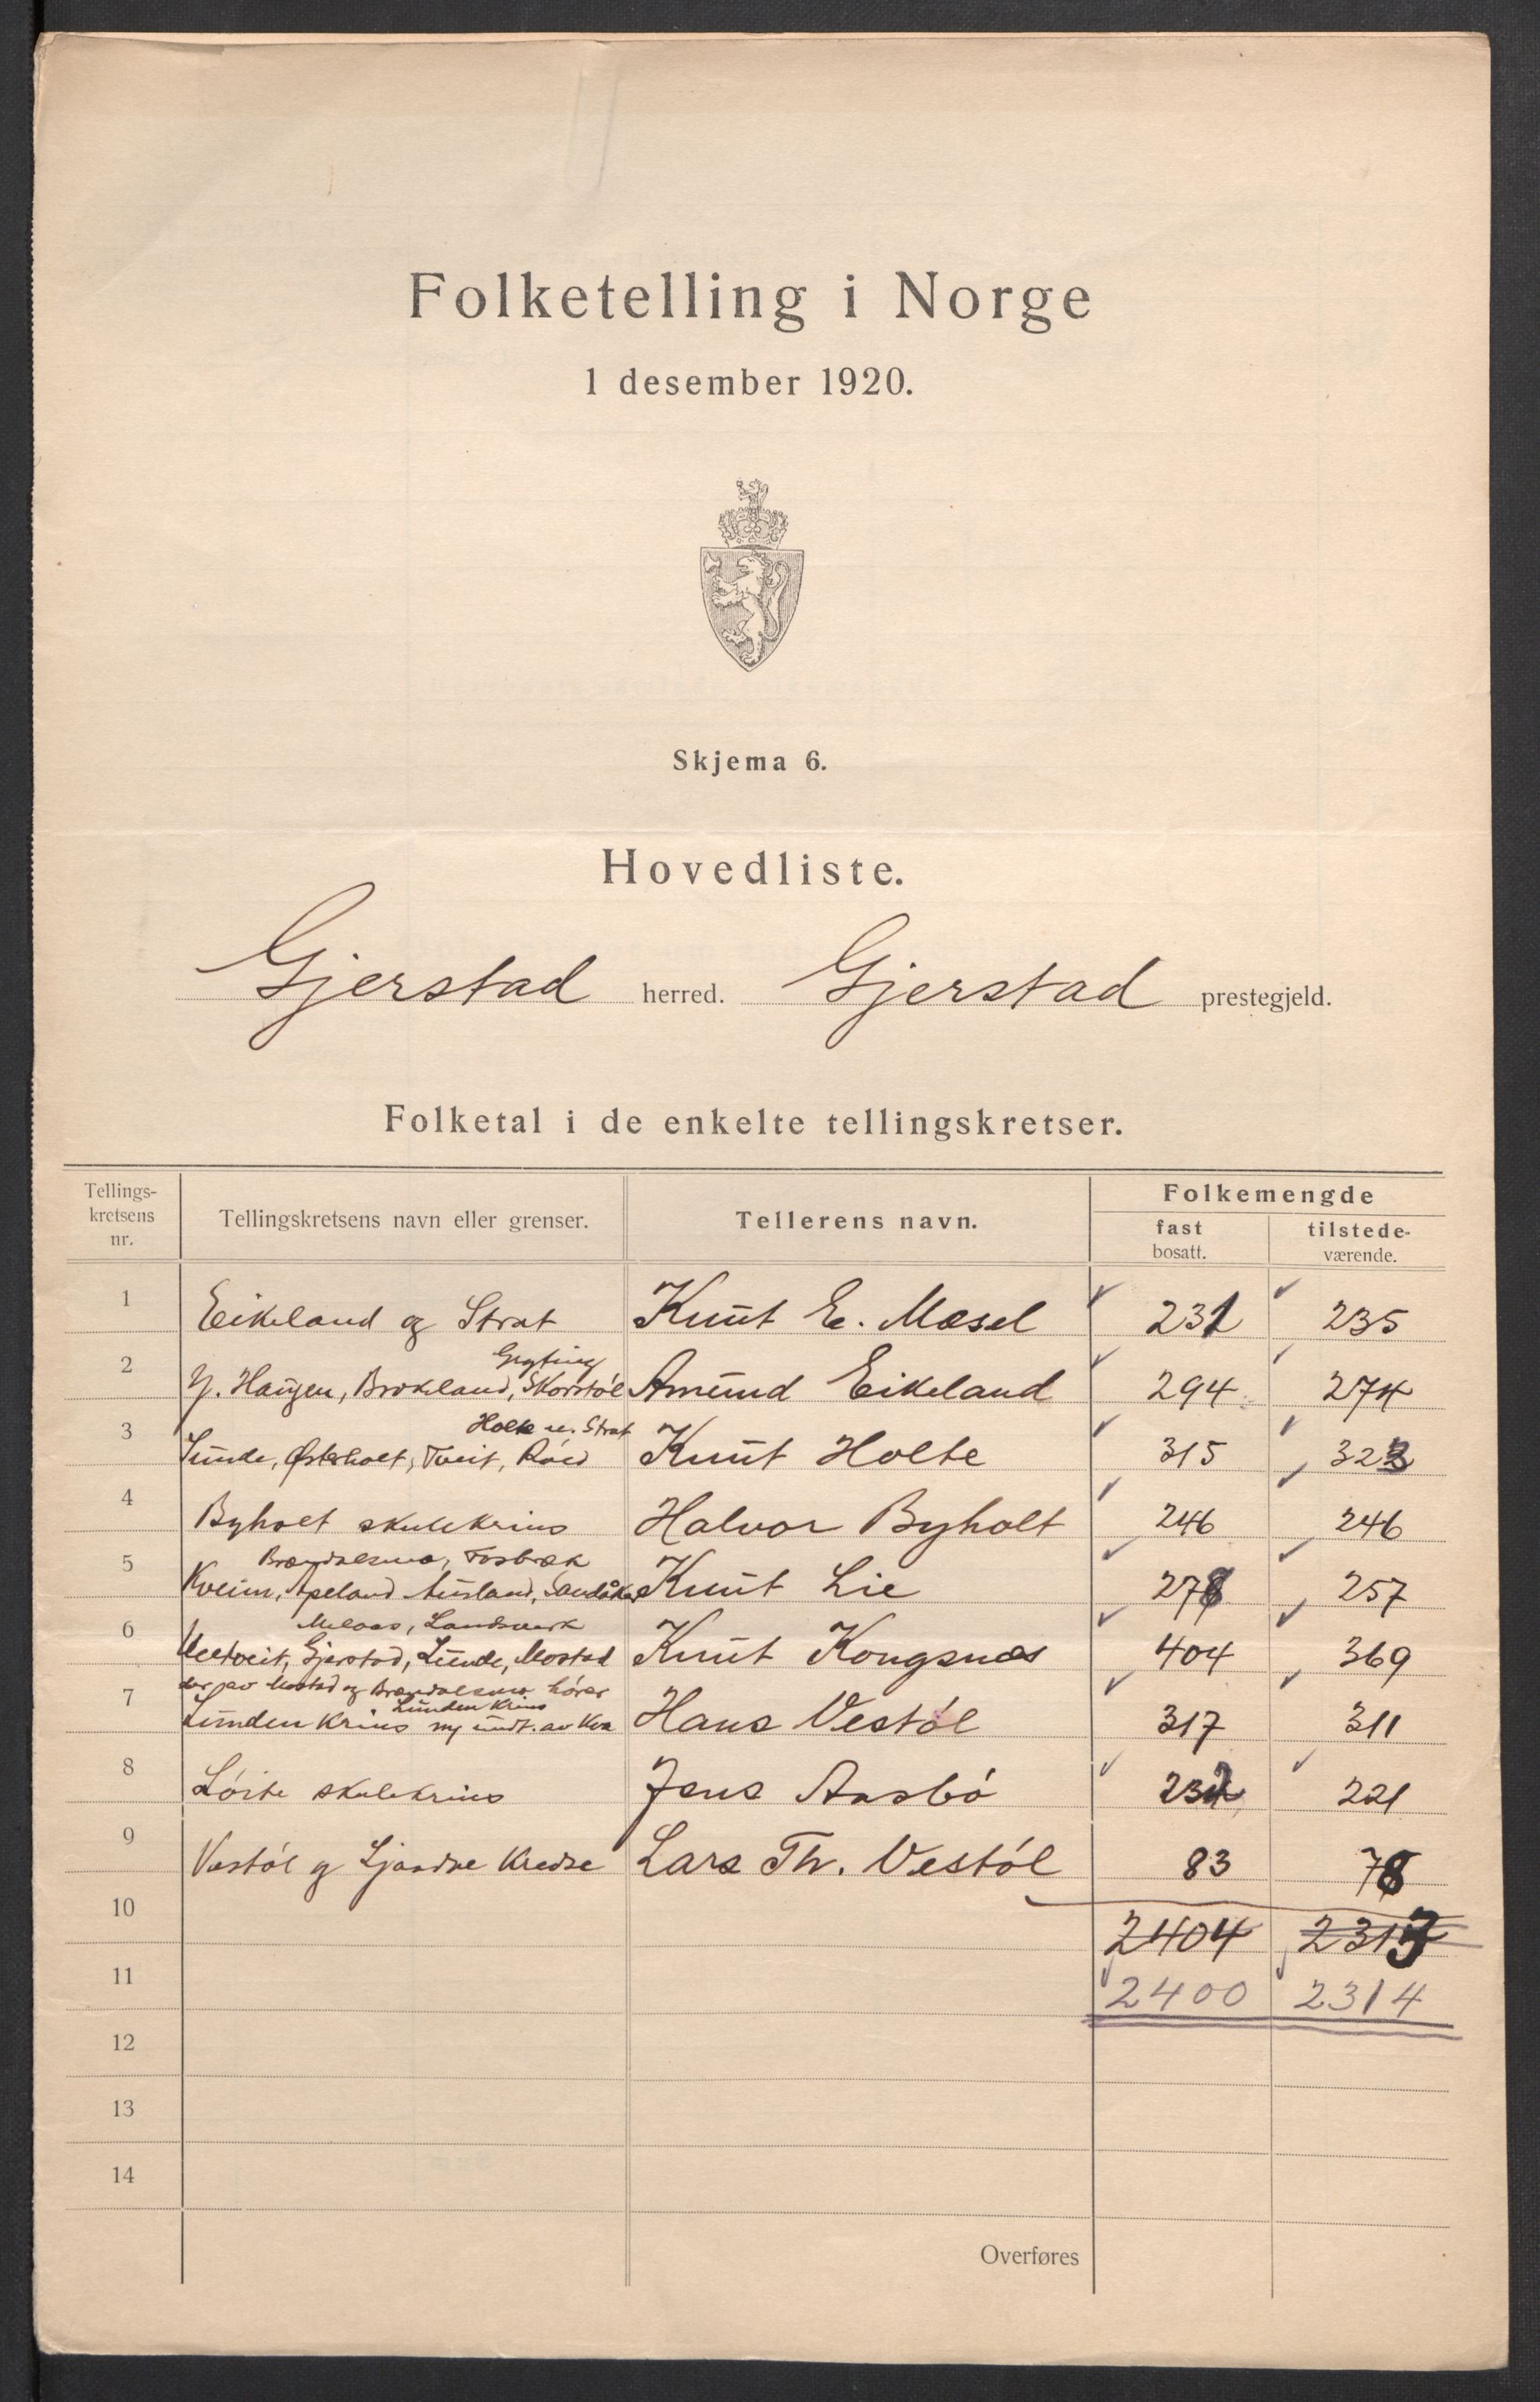 Folketelling i Norge
1 desember 1920.
Skjema 6.
Hovedliste.
Gjerstad herred. Gjerstad prestegjeld.
Folketal i de enkelte tellingskretser.
Tellings-
kretsens
nr.
Tellingskretsens navn eller grenser.
Tellerens navn.
Folkemengde
fast
bosatt.
tilstede-
værende.
1 Eikeland og Strat Knut E. Mæsel 231 235
Grytting
2 Y. Haugen, Brokeland, Skorstøl Amund Eikeland 294 274
Holte m. Strat
3 Sunde, Østerholt, Tveit, Røed Knut Holte 315 323
4 Byholt skulekrins Halvor Byholt 246 246
Brændalsmo, Fosbræk
5 Kveim, Apeland Ausland, Sandåker Knut Lie 278 257
Melaas, Landsverk
6 Ueltveit, Gjerstad, Lunde, Mostad Knut Kongsnæs 404 369
av Mostad og Brændalsmo hører
Lunden Krins
7 Lunden Krins undt. av Hans Vestøl 317 311
8 Løite skulekrins Jens Aasbø 232 221
9 Vestøl og Ljaadne Kredse Lars Th. Vestøl 83 78
10 2404 2313
11 2400 2314
12
13
14
Overføres